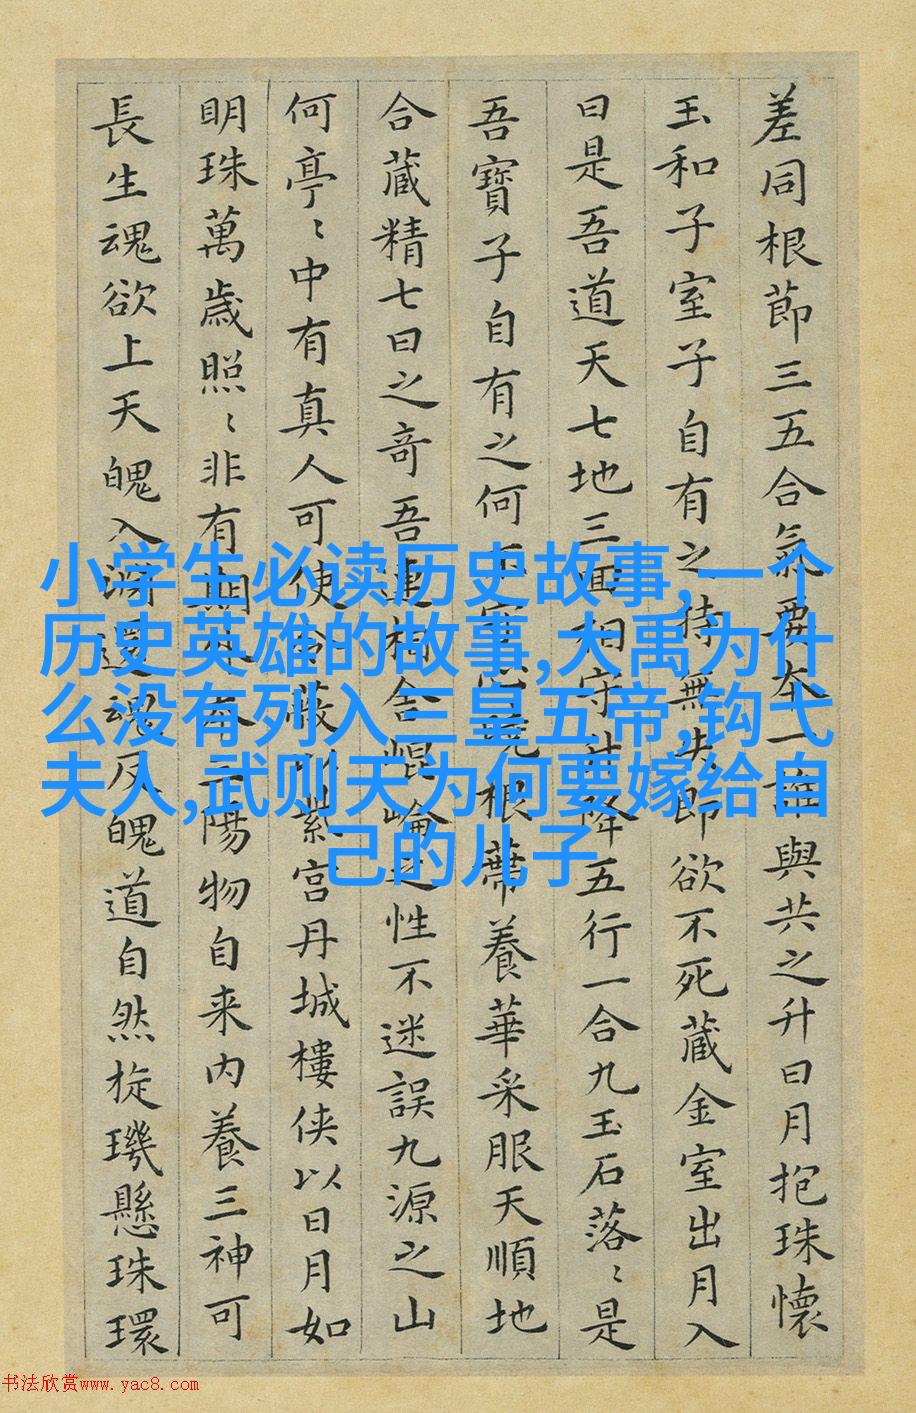 差同根節三五合氣要本一誰與共之升日月抱珠懷
玉和子室子自有之持無失即欲不死藏金室出月入
日是吾道天七地三回相守升降五行一合九玉石落〻是
吾寶子自有之何不守心曉根蔕養華采服天順地
合藏精七日之奇吾連相舍崐崘之性不迷誤九源之山
何亭〻中有真人可使令蔽以紫宮丹城樓俠以日月如
明珠萬歲照〻非有期外本三陽物自来内養三神可
長生魂欲上天魄入淵還魂反魄道自然旋璣懸珠環
小学生必读历史故事,一个
历史英雄的故事,大禹为什
么没有列入三皇五帝,钩弋
夫人,武则天为何要嫁给自
己的儿子
书法欣赏www.yac8.com